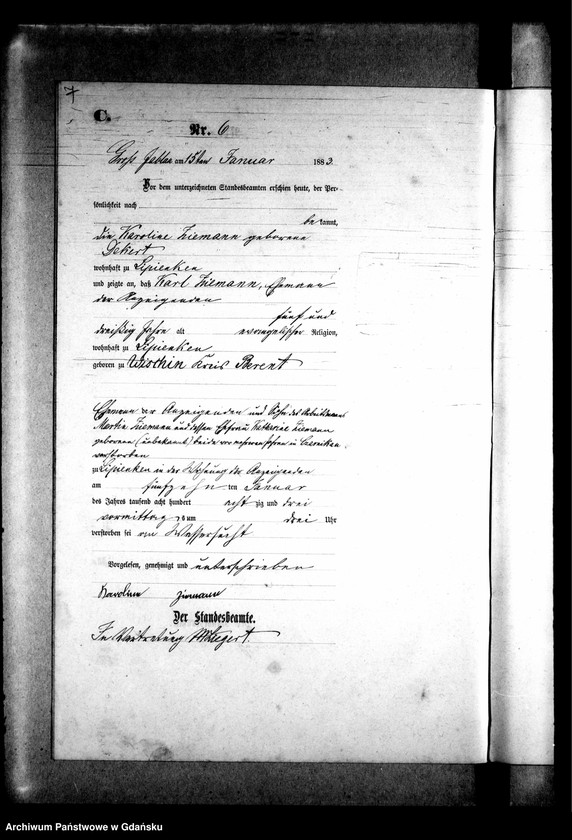 7
C.
Nr. 6
Groß Jablau am 15ten Januar 1883.
Vor dem unterzeichneten Standesbeamten erschien heute, der Per-
sönlichkeit nach
be kannt,
die Karoline Ziemann geborene
Dekert
wohnhaft zu Lipienken
und zeigte an, daß Karl Ziemann, Ehemann
der Anzeigenden
fünf und
dreißig Jahre alt evangelischer Religion,
wohnhaft zu Lipienken
geboren zu Wischin Kreis Berent
Ehemann der Anzeigenden und Sohn des
Martin Ziemann und dessen Ehefrau Ziemann
geborene (unbekannt) beide vor mehreren Jahren in
verstorben
zu Lipienken in der Wohnung der Anzeigenden
am fünfzehn ten Januar
des Jahres tausend acht hundert acht zig und drei
vormittags um drei Uhr
verstorben sei an Wassersucht
Vorgelesen, genehmigt und unterschrieben
Karoline Ziemann
Der Standesbeamte.
In Vertretung
Archiwum Państwowe w Gdańsku